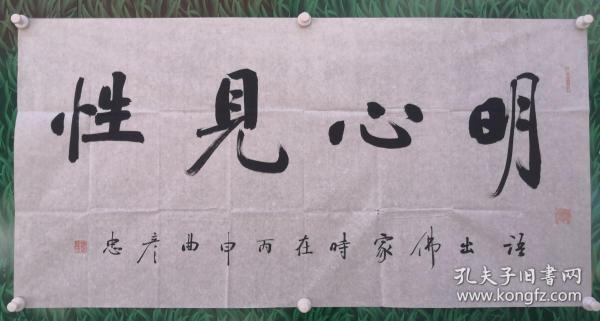 明心見性
語出佛家時在丙申曲彦忠
孔夫子旧书网
www.kongfz.com